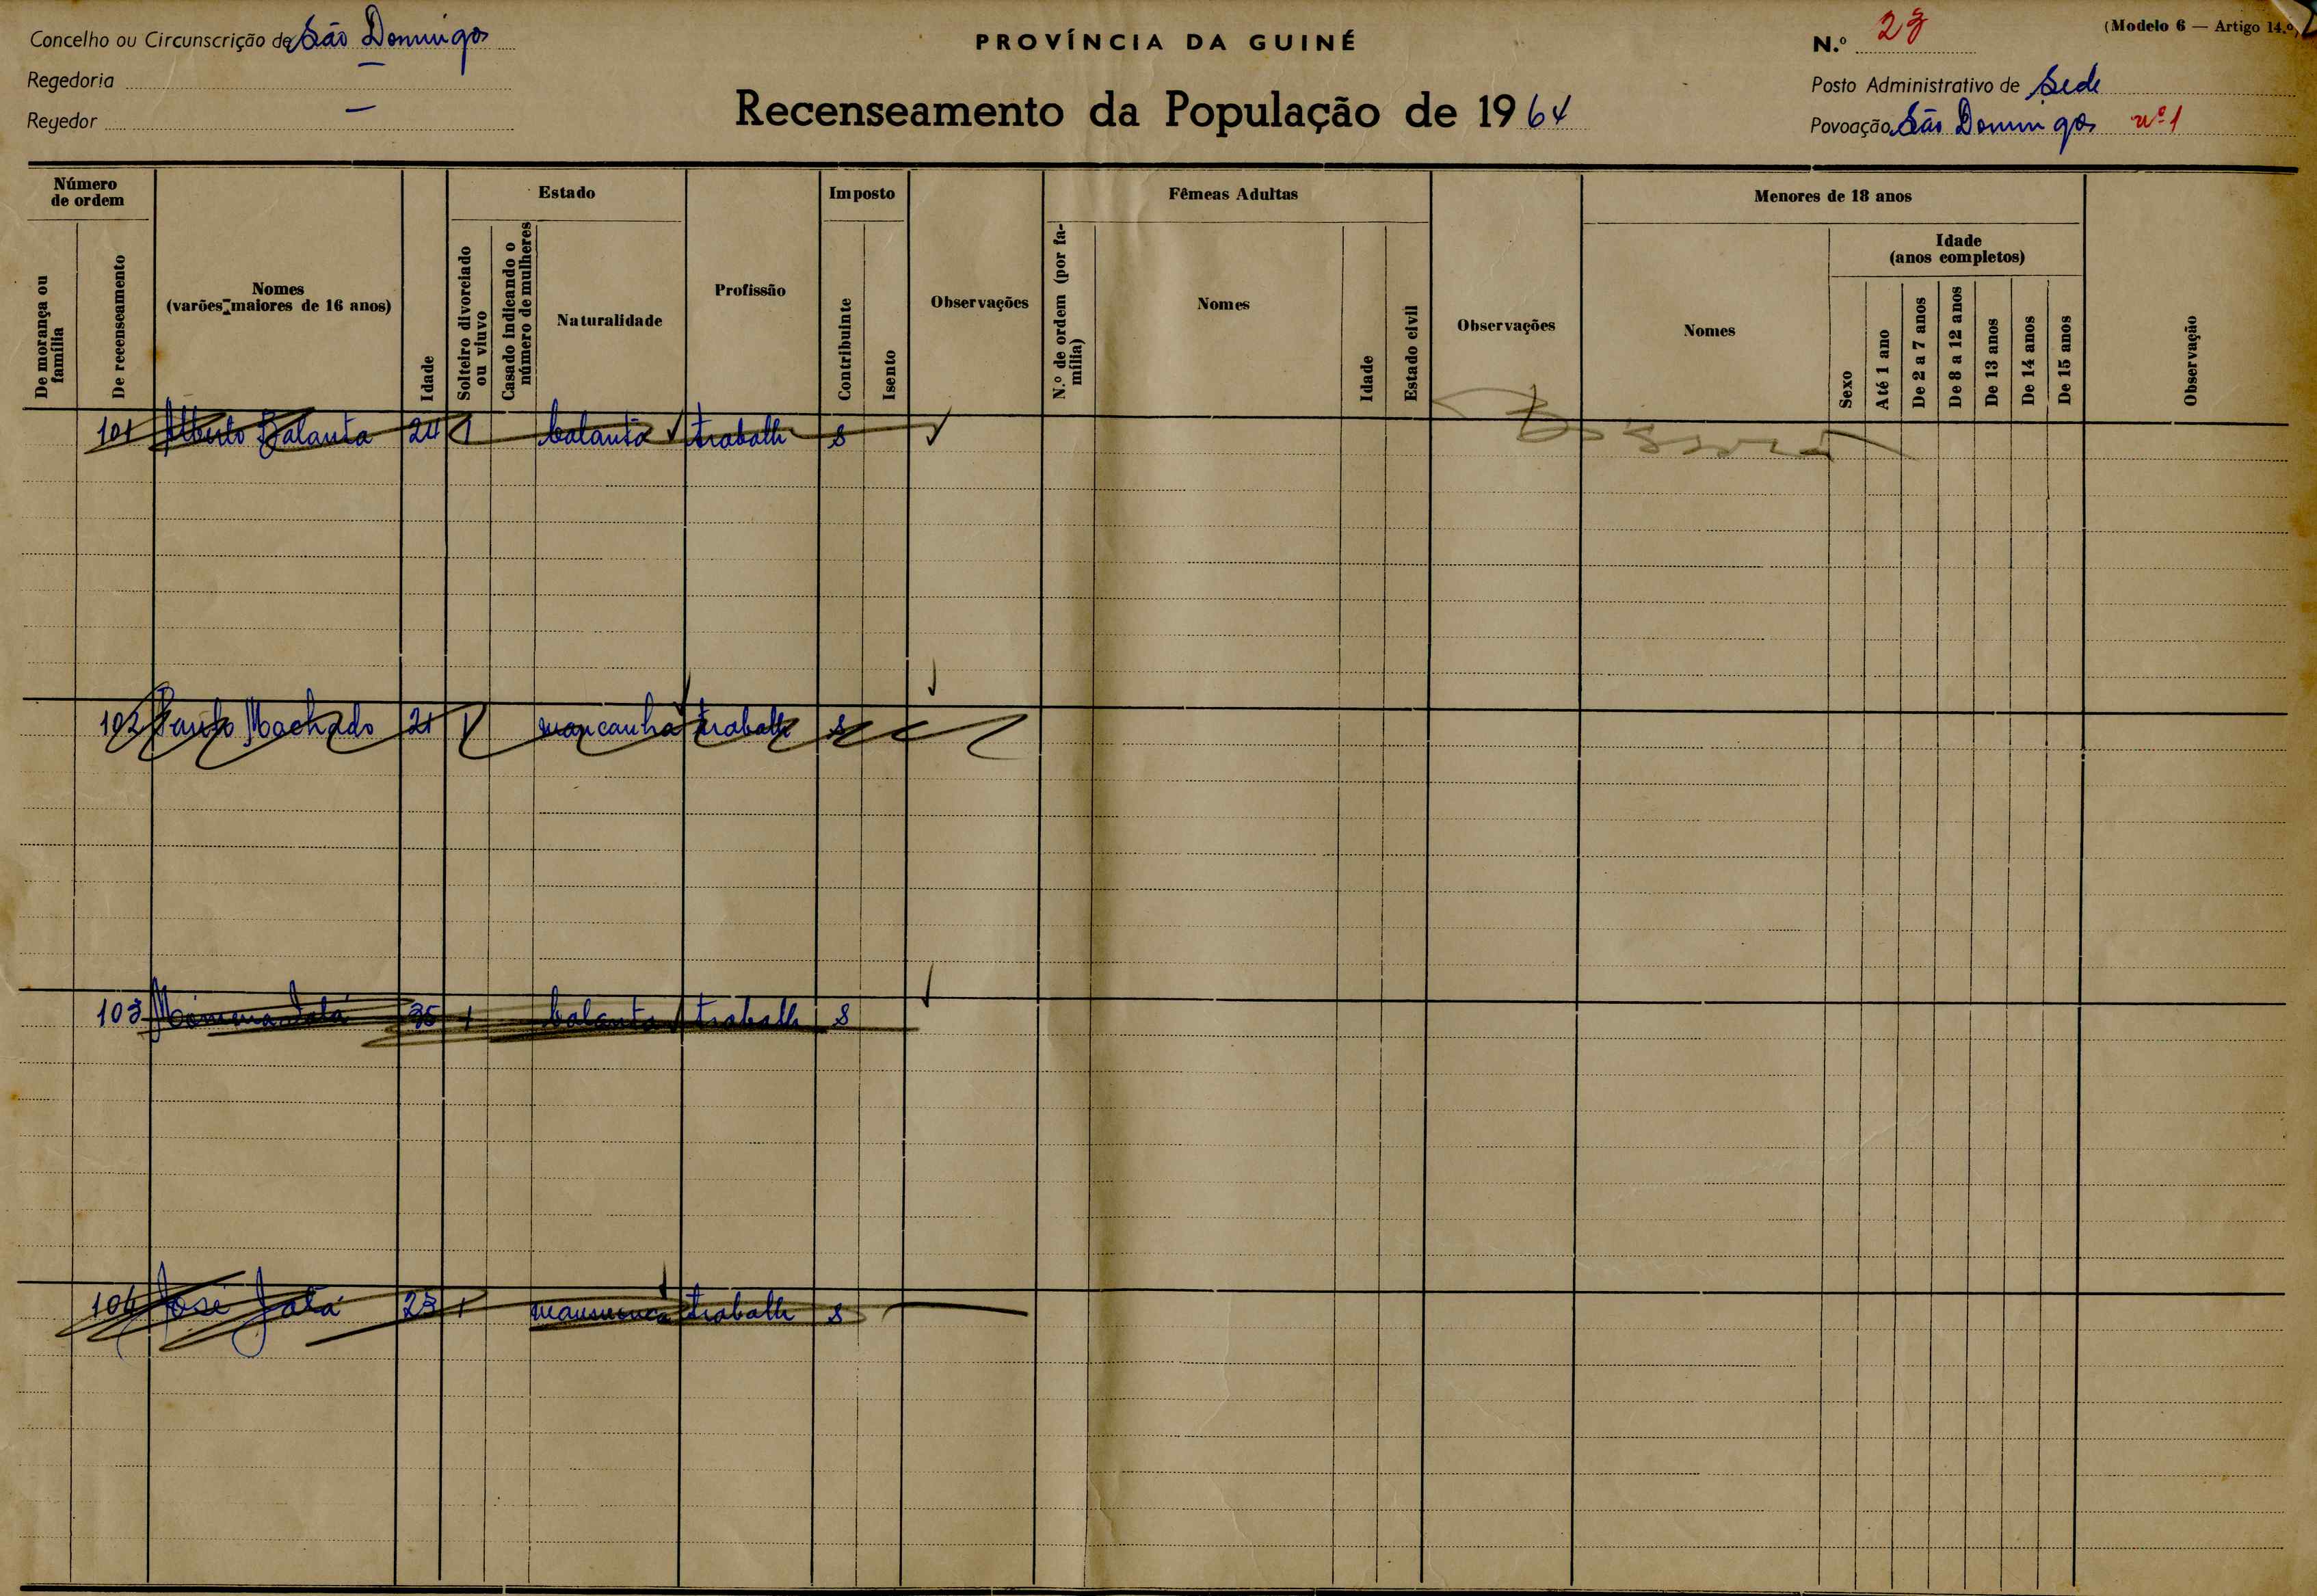 Concelho ou Circunscrição de São Domingos
Regedoria —
Regedor —
PROVÍNCIA DA GUINÉ
Recenseamento da População de 1964
(Modelo 6 — Artigo 14.º)
N.º
Posto Administrativo de Sede
Povoação São Domingos nº 1
Número de ordem
De morança ou família
De recenseamento
Nomes
(varões maiores de 16 anos)
Idade
Estado
Solteiro divorciado ou viuvo
Casado indicando o número de mulheres
Naturalidade
Profissão
Imposto
Contribuinte
Isento
Observações
Fêmeas Adultas
N.º de ordem (por família)
Nomes
Idade
Estado civil
Observações
Menores de 18 anos
Nomes
Idade
(anos completos)
Sexo
Até 1 ano
De 2 a 7 anos
De 8 a 12 anos
De 13 anos
De 14 anos
De 15 anos
Observação
101 Alberto Balanta 24 1 balanta trabalh s
102 Paulo Machado 21 1 mancanha trabalh s
103 35 1 balanta trabalh s
104 José 23 1 trabalh s